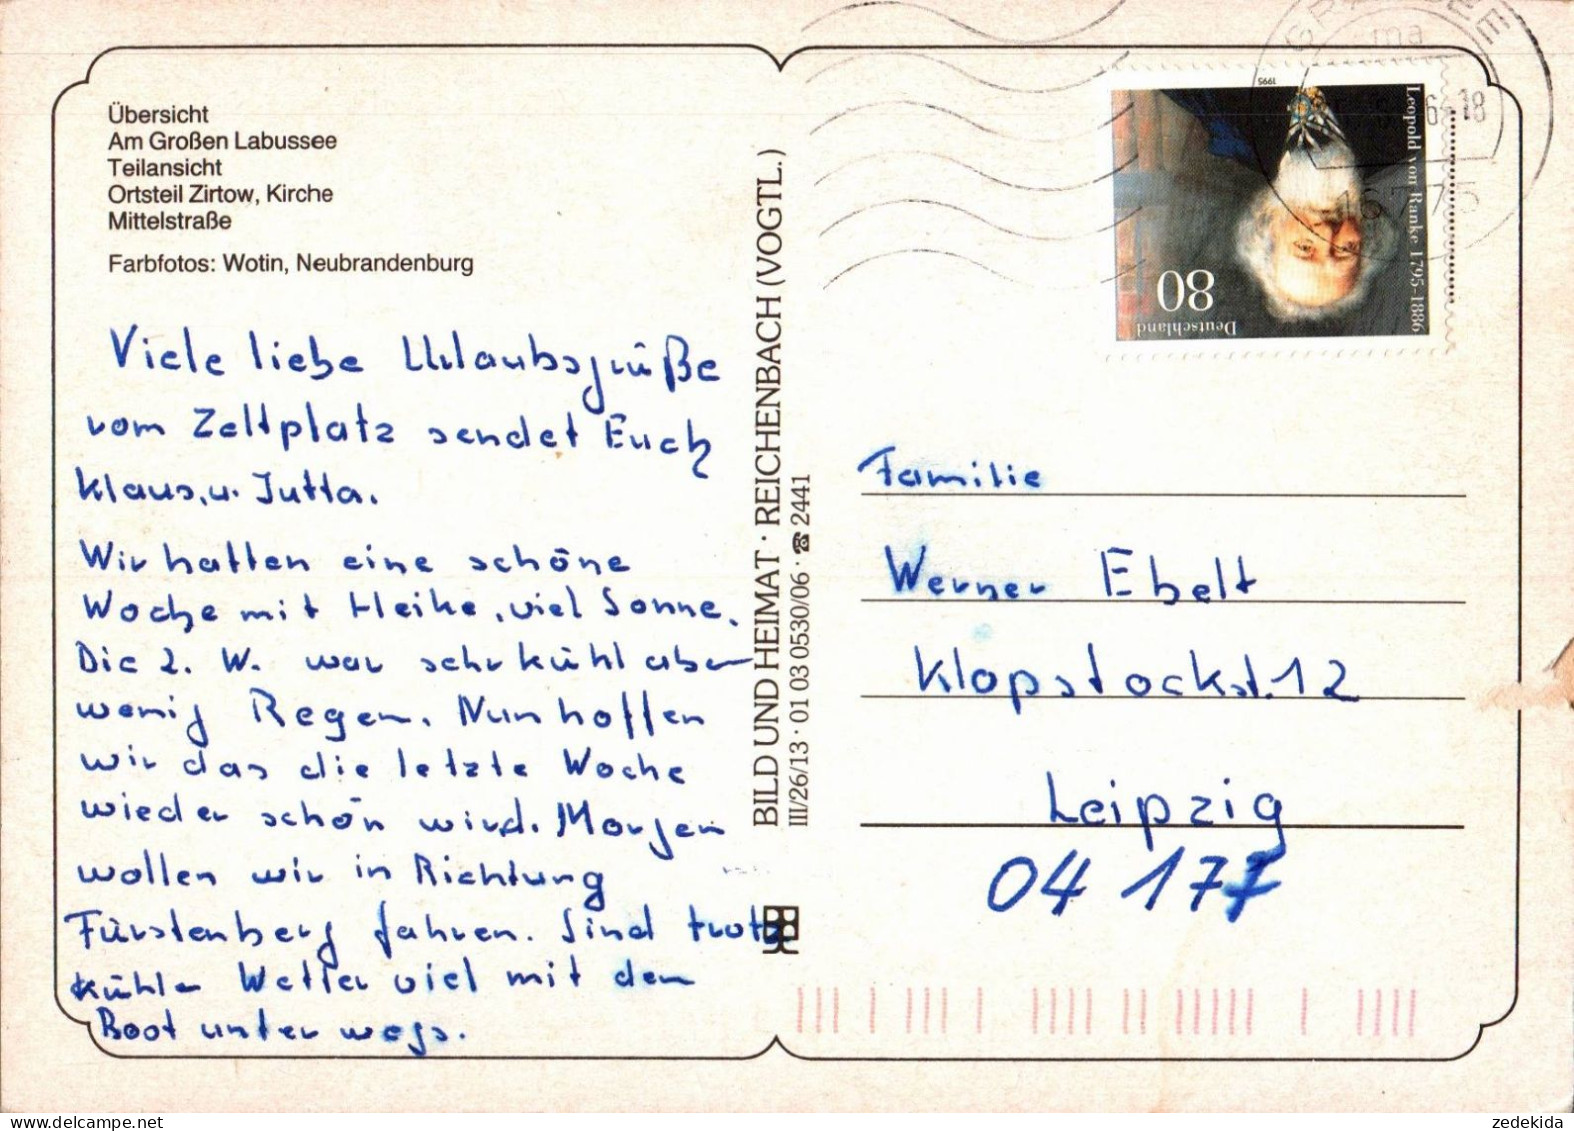 Übersicht
Am Großen Labussee
Teilansicht
Ortsteil Zirtow, Kirche
Mittelstraße
Farbfotos: Wotin, Neubrandenburg
Viele liebe Urlaubsgrüße
vom Zeltplatz sendet Euch
Klaus, u. Jutta.
Wir hatten eine schöne
Woche mit Heike, viel Sonne.
Die 2. W. war sehr kühl aber
wenig Regen. Nun hoffen
wir das die letzte Woche
wieder schön wird. Morgen
wollen wir in Richtung
Fürstenberg fahren. Sind trotz
kühlen Wetter viel mit dem
Boot unter wegs.
BILD UND HEIMAT · REICHENBACH (VOGTL.)
III/26/13 · 01 03 0530/06 · ☎ 2441
1995
Leopold von Ranke 1795-1886
80
Deutschland
ma
16775
Familie
Werner Ebelt
Klopstockst. 12
Leipzig
04 177
zedekida